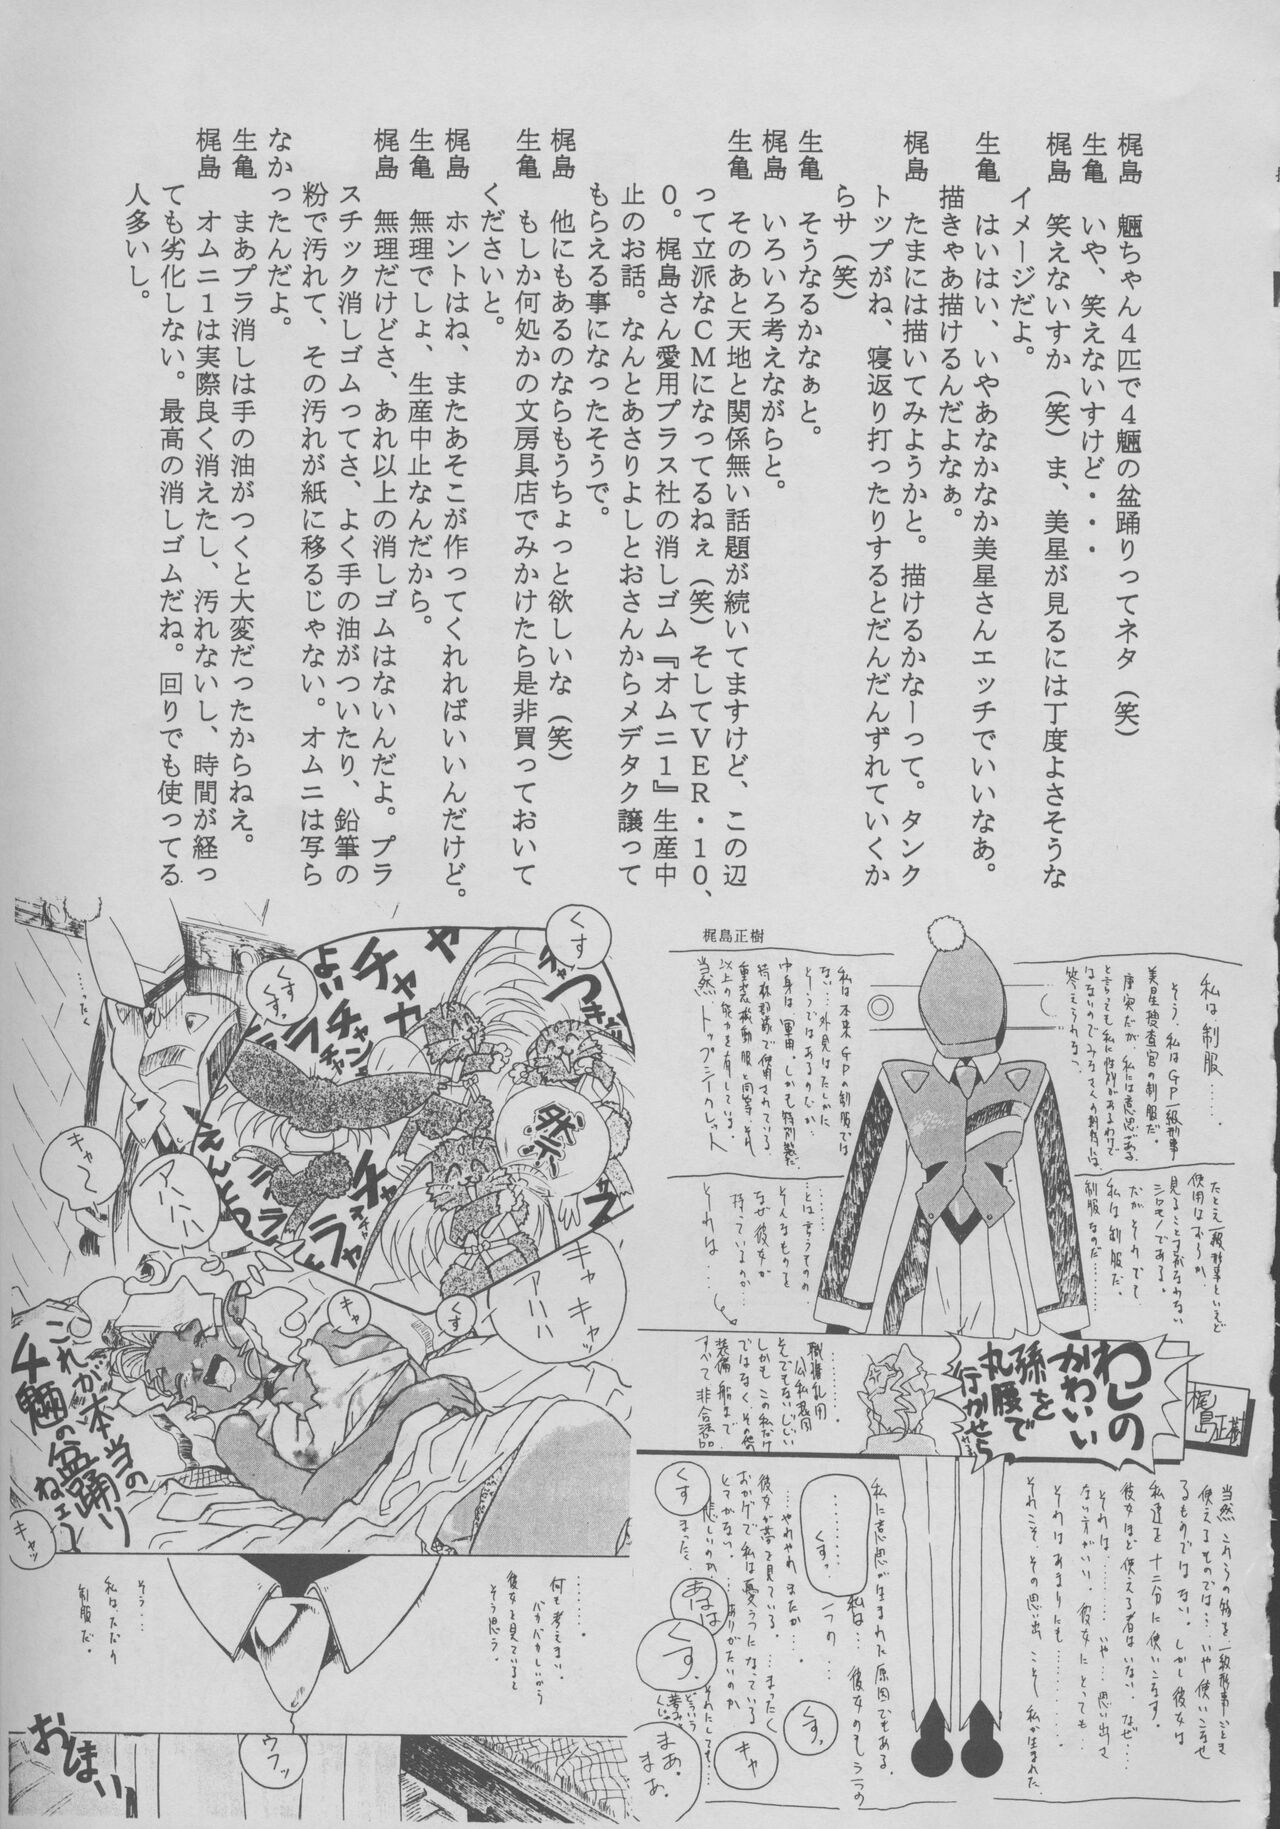 梶島　魎ちゃん4匹で4魎の盆踊りってネタ（笑）
生亀　いや、笑えないすけど・・・
梶島　笑えないすか（笑）ま、美星が見るには丁度よさそうな
イメージだよ。
生亀　はいはい、いやあなかなか美星さんエッチでいいなあ。
描きゃあ描けるんだよなぁ。
梶島　たまには描いてみようかと。描けるかなーって。タンク
トップがね、寝返り打ったりするとだんだんずれていくか
らサ（笑）
生亀　そうなるかなぁと。
梶島　いろいろ考えながらと。
生亀　そのあと天地と関係無い話題が続いてますけど、この辺
って立派なCMになってるねぇ（笑）そしてVER・10、
0。梶島さん愛用プラス社の消しゴム『オムニ1』生産中
止のお話。なんとあさりよしとおさんからメデタク譲って
もらえる事になったそうで。
梶島　他にもあるのならもうちょっと欲しいな（笑）
生亀　もしか何処かの文房具店でみかけたら是非買っておいて
くださいと。
梶島　ホントはね、またあそこが作ってくれればいいんだけど。
生亀　無理でしょ、生産中止なんだから。
梶島　無理だけどさ、あれ以上の消しゴムはないんだよ。プラ
スチック消しゴムってさ、よく手の油がついたり、鉛筆の
粉で汚れて、その汚れが紙に移るじゃない。オムニは写ら
なかったんだよ。
生亀　まあプラ消しは手の油がつくと大変だったからねえ。
梶島　オムニ1は実際良く消えたし、汚れないし、時間が経っ
ても劣化しない。最高の消しゴムだね。回りでも使ってる
人多いし。
梶島正樹
私は制服……
そう、私はGP一級刑事
美星捜査官の制服だ。
唐突だが、私には意思がある
と言っても私に性別があるわけで
はないのでみなさんの期待には
答えられない。
私は本来GPの制服では
ない…外見はたしかに
そうではあるのだが、
中身は軍用。しかも特別製だ
特殊部隊で使用されている
重装機動服と同等、それ
以上の能力を有している。
当然、トップシークレット
たとえ一級刑事といえど
使用はおろか、
見ることすらかなわない
シロモノである。
だが、それでも
私は制服だ。
制服なのだ……
……とは言うものの
そんなものを
なぜ彼女が
持っているのか…
それは……
わしの
かわいい
孫を
丸腰で
行かせられるか
梶島正樹
職権乱用
公私混同
そでもないじじい
しかもこの私だけ
ではなく、その他
装備、船まで
すべて非合法品
当然これらの物を一級刑事ごとき
使えるものでは…いや使いこなせ
るものではない。しかし彼女は
私達を十二分に使いこなす。
彼女ほど使える者はいない。なぜ…
それは……いや…思い出さ
ない方がいい。彼女にとっても
それはあまりにも……
それこそ、その思い出こそ、私が生まれた
私に意思が生まれた原因でもある。
私は…彼女のもう一つの
……一つの…
くすっ
……やれやれ、またか…
彼女が夢を見ている。…まったく
おかげで私は憂うつになっている
とてがない。
ありがたいのか
悲しいのか
まった
それにしても…
どういう
夢みとん
くじゃ
くす
あはは
くす。
くすっ
キャ
まあ。
まあ。
くすっ
くす
くすくす
つきがー
でたー
チャチャ
チャンカ
チャラ
チャンチャン
よいよい
チャチャ
チャンチャラ
チャラ
祭
……ったく
キャ〜
アハハハ
キャ
キャッ
アハハハ
くす
キャッ
キャッ
これが本当の
4魎の盆踊り
ねェー
何も考えまい。
バカバカしいがう
彼女を見ていると
そう思う。
そう…
私はただの
制服だ。
おほほ
ウフッ